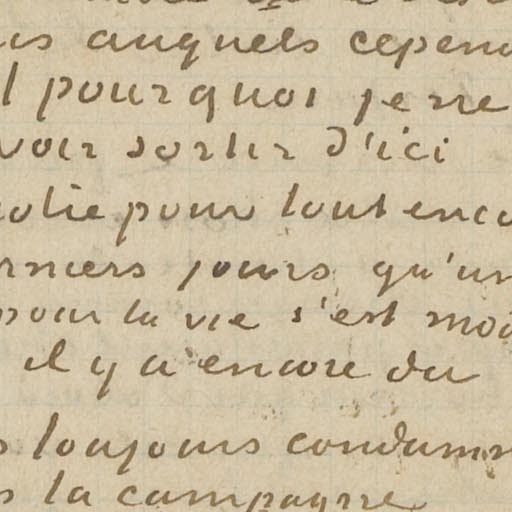 auquels cepend
pourquoi je ne
voir sortir d'ici
pour tout enco
rniers jours qu'un
pour la vie s'est mod
il y a encore du
toujours condamn
la campagne